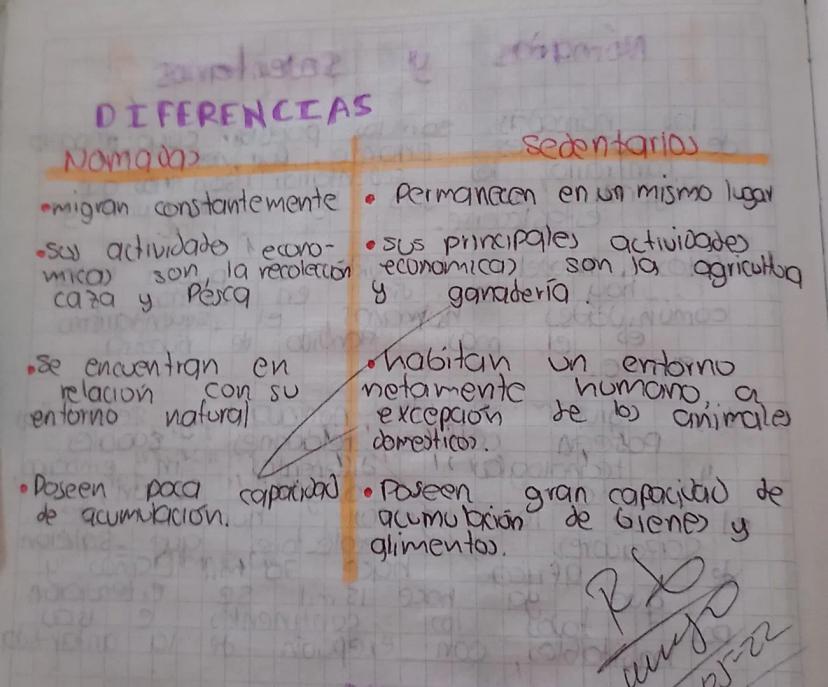 DIFERENCIAS
Nomadas
sedentarios
• migran constantemente
• sus actividades econo-
micas son, la recolección
caza y Pesca
• Se encuentran en
relación con su
entorno natural
• Poseen poca capacidad
de acumulación.
• Permanecen en un mismo lugar
• sus principales actividades
economicas son la agricultura
y ganadería.
• habitan un entorno
netamente humano, a
excepción de los animales
domesticos.
• Poseen gran capacidad de
acumulación de bienes y
alimentos.